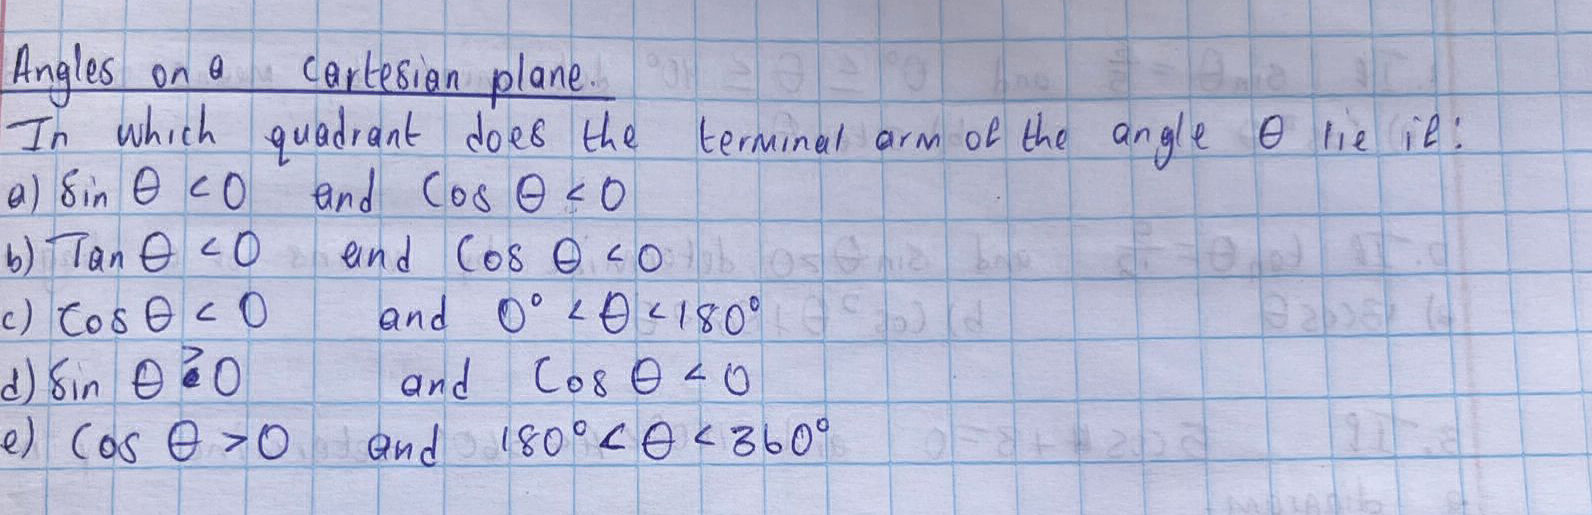 Angles on a Cartesian plane.
In which quadrant does the terminal arm of the angle θ lie if:
a) Sin θ < 0 and Cos θ < 0
b) Tan θ < 0 and Cos θ < 0
c) Cos θ < 0 and 0° < θ < 180°
d) Sin θ > 0 and Cos θ < 0
e) Cos θ > 0 and 180° < θ < 360°